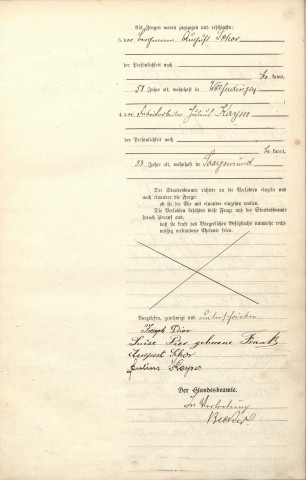 Als Zeugen waren zugezogen und erschienen:
3. der Bergmann August Schor
der Persönlichkeit nach
be kannt,
51 Jahre alt, wohnhaft in
4. der Fabrikarbeiter Julius Kayser
der Persönlichkeit nach
be kannt,
33 Jahre alt, wohnhaft in Saargemünd
Der Standesbeamte richtete an die Verlobten einzeln und
nach einander die Frage:
ob sie die Ehe mit einander eingehen wollen.
Die Verlobten bejahten diese Frage und der Standesbeamte
sprach hierauf aus,
daß sie kraft des Bürgerlichen Gesetzbuchs nunmehr recht-
mäßig verbundene Eheleute seien.
Vorgelesen, genehmigt und unterschrieben
Joseph Dier
Luise Dier geborene Frank
August Schor
Julius Kayser
Der Standesbeamte.
In Vertretung
Becker